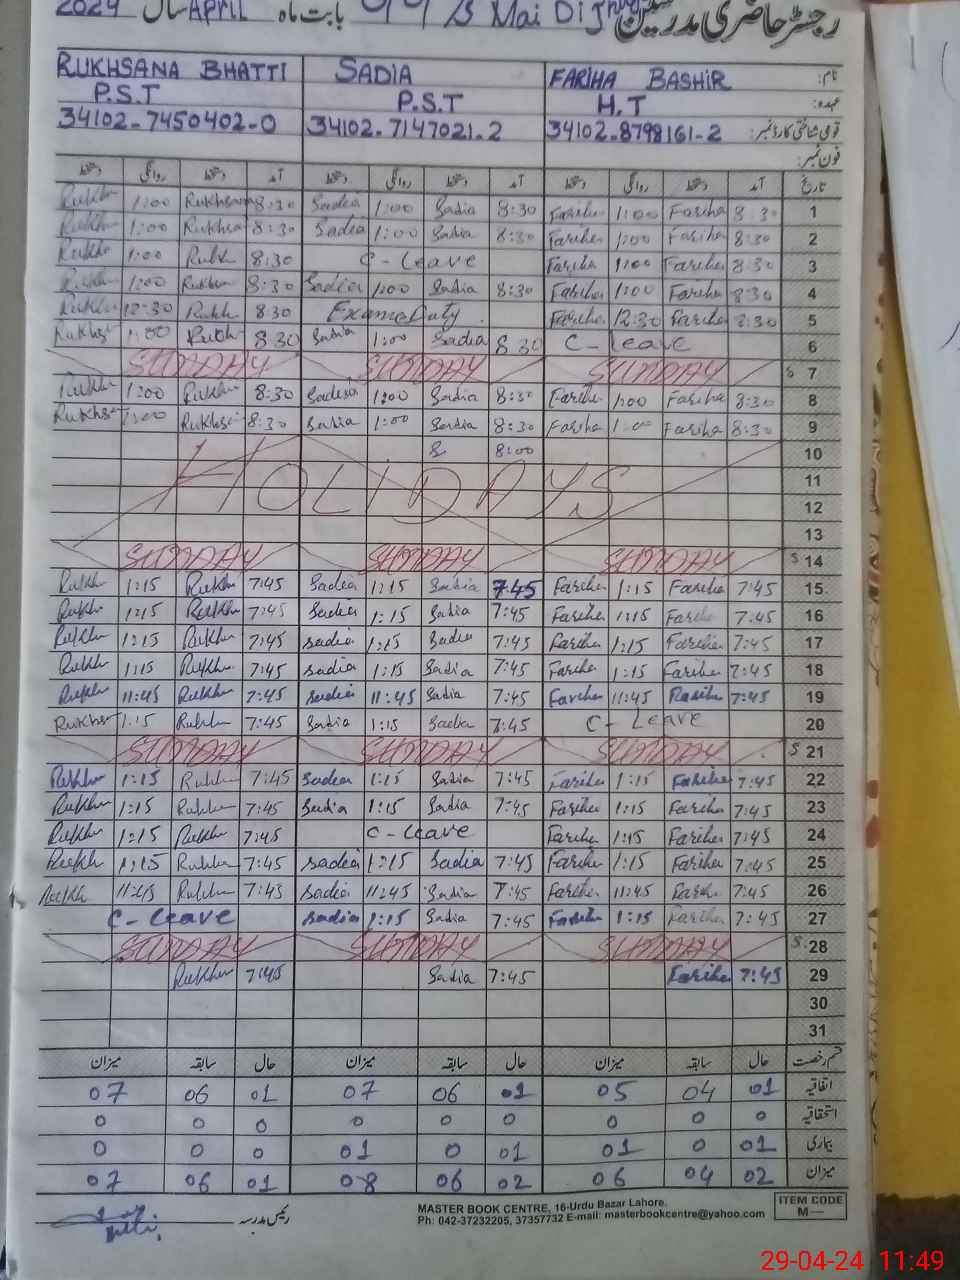 رجسٹر حاضری مدرسین Mai Di بابت ماہ APRIL سال 2024
RUKHSANA BHATTI SADIA FARIHA BASHIR نام:
P.S.T P.S.T H.T عہدہ:
34102-7450402-0 34102-7147021-2 34102-8798161-2 قومی شناختی کارڈ نمبر:
فون نمبر:
دستخط روانگی دستخط آمد دستخط روانگی دستخط آمد دستخط روانگی دستخط آمد تاریخ
Rukh 1:00 Rukhsana 8:30 Sadia 1:00 Sadia 8:30 Fariha 1:00 Fariha 8:30 1
Rukh 1:00 Rukhsa 8:30 Sadia 1:00 Sadia 8:30 Fariha 1:00 Fariha 8:30 2
Rukh 1:00 Rukh 8:30 C-Leave Fariha 1:00 Fariha 8:30 3
Rukh 1:00 Rukh 8:30 Sadia 1:00 Sadia 8:30 Fariha 1:00 Fariha 8:30 4
Rukh 12:30 Rukh 8:30 Exame Duty Fariha 12:30 Fariha 8:30 5
Rukhs 1:00 Rukh 8:30 Sadia 1:00 Sadia 8:30 C-Leave 6
SUNDAY SUNDAY SUNDAY S 7
Rukh 1:00 Rukh 8:30 Sadia 1:00 Sadia 8:30 Fariha 1:00 Fariha 8:30 8
Rukhs 1:00 Rukhsa 8:30 Sadia 1:00 Sadia 8:30 Fariha 1:00 Fariha 8:30 9
8 8:00 10
HOLIDAYS 11
12
13
SUNDAY SUNDAY SUNDAY S 14
Rukh 1:15 Rukh 7:45 Sadia 1:15 Sadia 7:45 Fariha 1:15 Fariha 7:45 15
Rukh 1:15 Rukh 7:45 Sadia 1:15 Sadia 7:45 Fariha 1:15 Fariha 7:45 16
Rukh 1:15 Rukh 7:45 Sadia 1:15 Sadia 7:45 Fariha 1:15 Fariha 7:45 17
Rukh 1:15 Rukh 7:45 Sadia 1:15 Sadia 7:45 Fariha 1:15 Fariha 7:45 18
Rukh 11:45 Rukh 7:45 Sadia 11:45 Sadia 7:45 Fariha 11:45 Fariha 7:45 19
Rukhsa 1:15 Rukh 7:45 Sadia 1:15 Sadia 7:45 C-Leave 20
SUNDAY SUNDAY SUNDAY S 21
Rukh 1:15 Rukh 7:45 Sadia 1:15 Sadia 7:45 Fariha 1:15 Fariha 7:45 22
Rukh 1:15 Rukh 7:45 Sadia 1:15 Sadia 7:45 Fariha 1:15 Fariha 7:45 23
Rukh 1:15 Rukh 7:45 C-Leave Fariha 1:15 Fariha 7:45 24
Rukh 1:15 Rukh 7:45 Sadia 1:15 Sadia 7:45 Fariha 1:15 Fariha 7:45 25
Rukh 11:45 Rukh 7:45 Sadia 11:45 Sadia 7:45 Fariha 11:45 Farih 7:45 26
C-Leave Sadia 1:15 Sadia 7:45 Fariha 1:15 Fariha 7:45 27
SUNDAY SUNDAY SUNDAY S 28
Rukh 7:45 Sadia 7:45 Fariha 7:45 29
30
31
میزان سابقہ حال میزان سابقہ حال میزان سابقہ حال قسم رخصت
07 06 01 07 06 01 05 04 01 اتفاقیہ
0 0 0 0 0 0 0 0 0 استحقاقیہ
0 0 0 01 0 01 01 0 01 بیماری
07 06 01 08 06 02 06 04 02 میزان
رئیس مدرسہ
MASTER BOOK CENTRE, 16-Urdu Bazar Lahore.
Ph: 042-37232205, 37357732 E-mail: masterbookcentre@yahoo.com
ITEM CODE
M—
29-04-24 11:49